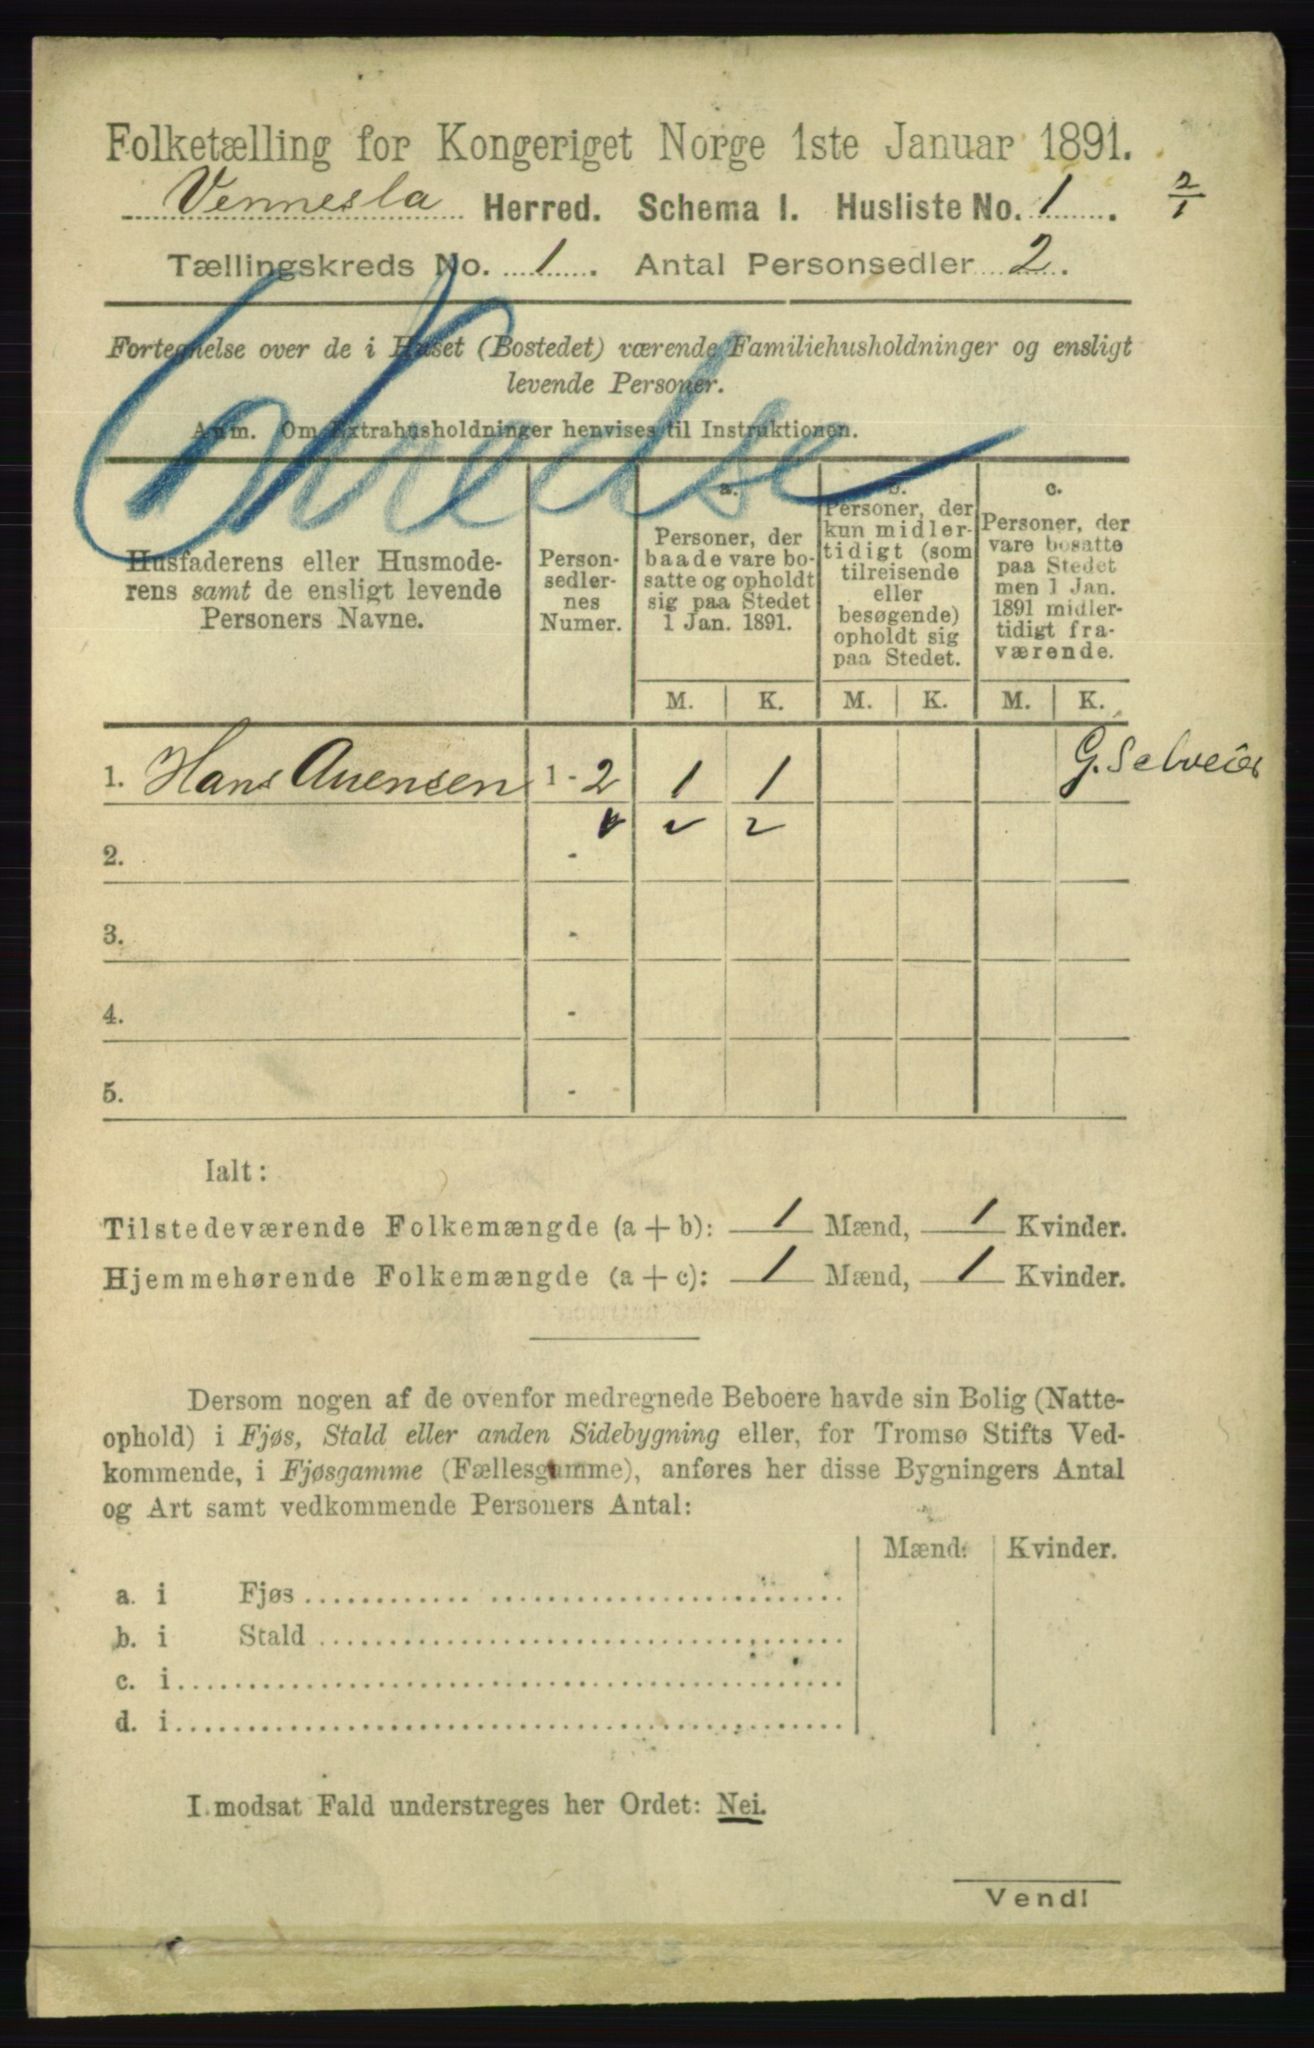 Folketælling for Kongeriget Norge 1ste Januar 1891.
Vennesla Herred. Schema I. Husliste No. 1. 2/1
Tællingskreds No. 1. Antal Personsedler 2.
Fortegnelse over de i Huset (Bostedet) værende Familiehusholdninger og ensligt
levende Personer.
Anm. Om Extrahusholdninger henvises til Instruktionen.
Husfaderens eller Husmode-
rens samt de ensligt levende
Personers Navne.
Person-
sedler-
nes
Numer.
a.
Personer, der
baade vare bo-
satte og opholdt
sig paa Stedet
1 Jan. 1891.
b.
Personer, der
kun midler-
tidigt (som
tilreisende
eller
besøgende)
opholdt sig
paa Stedet.
c.
Personer, der
vare bosatte
paa Stedet
men 1 Jan.
1891 midler-
tidigt fra-
værende.
M. K. M. K. M. K.
1. Hans Auensen 1 - 2 1 1 G. Selveier
2. -
3. -
4. -
5. -
Ialt:
Tilstedeværende Folkemængde (a + b): 1 Mænd, 1 Kvinder.
Hjemmehørende Folkemængde (a + c): 1 Mænd, 1 Kvinder.
Dersom nogen af de ovenfor medregnede Beboere havde sin Bolig (Natte-
ophold) i Fjøs, Stald eller anden Sidebygning eller, for Tromsø Stifts Ved-
kommende, i Fjøsgamme (Fællesgamme), anføres her disse Bygningers Antal
og Art samt vedkommende Personers Antal:
Mænd. Kvinder.
a. i Fjøs
b. i Stald
c. i
d. i
I modsat Fald understreges her Ordet: Nei.
Vend!